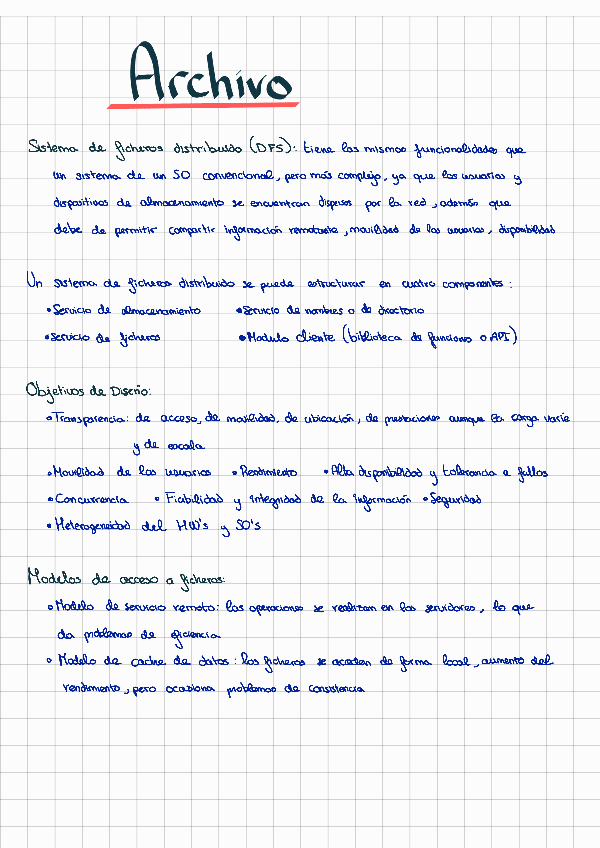 Archivo
Sistema de ficheros distribuido (DFS): tiene las mismas funcionalidades que
un sistema de un SO convencional, pero más complejo, ya que los usuarios y
dispositivos de almacenamiento se encuentran dispersos por la red, además que
debe de permitir compartir información remotante, movilidad de los usuarios, disponibilidad
Un sistema de ficheros distribuido se puede estructurar en cuatro componentes:
•Servicio de almacenamiento •Servicio de nombres o de directorio
•Servicio de ficheros •Modulo cliente (biblioteca de funciones o API)
Objetivos de Diseño:
•Transparencia: de acceso, de movilidad, de ubicación, de prestaciones aunque la carga varíe
y de escala
•Movilidad de los usuarios •Rendimiento •Alta disponibilidad y tolerancia a fallos
•Concurrencia • Fiabilidad y integridad de la información •Seguridad
•Heterogeneidad del HW's y SO's
Modelos de acceso a ficheros:
•Modelo de servicio remoto: las operaciones se realizan en los servidores, lo que
da problemas de eficiencia
• Modelo de cache de datos: los ficheros se acceden de forma local, aumento del
rendimiento, pero ocasiona problemas de consistencia